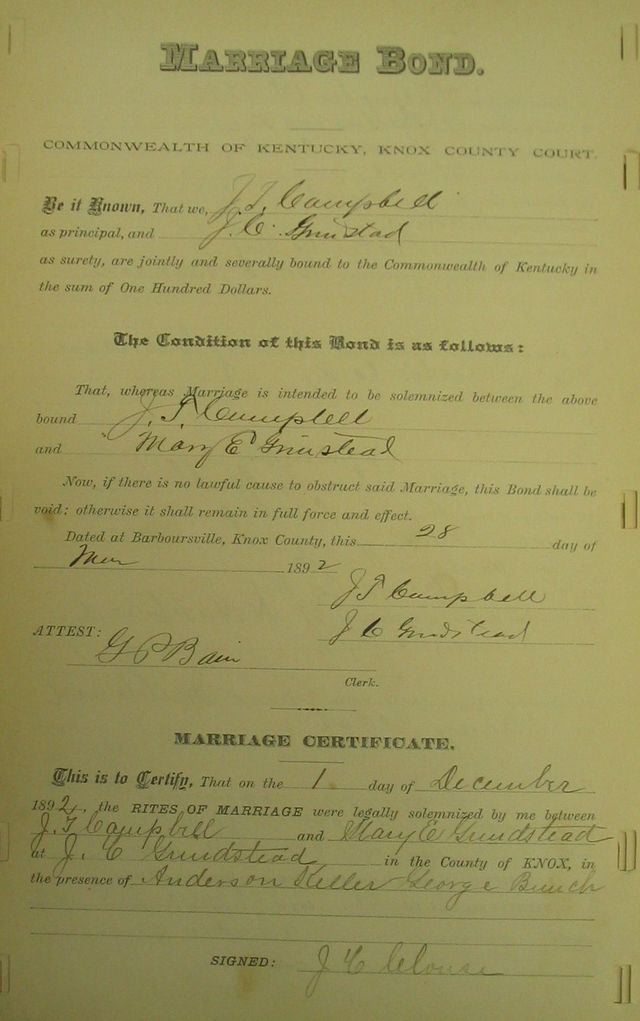 MARRIAGE BOND.
COMMONWEALTH OF KENTUCKY, KNOX COUNTY COURT.
Be it Known, That we, J. T. Campbell
as principal, and J. C. Grinstad
as surety, are jointly and severally bound to the Commonwealth of Kentucky in
the sum of One Hundred Dollars.
The Condition of this Bond is as follows:
That, whereas Marriage is intended to be solemnized between the above
bound J. T. Campbell
and Mary E Grinstead
Now, if there is no lawful cause to obstruct said Marriage, this Bond shall be
void; otherwise it shall remain in full force and effect.
Dated at Barboursville, Knox County, this 28 day of
1892
J T Campbell
J C Grindstead
ATTEST:
G P Bain
Clerk.
MARRIAGE CERTIFICATE.
This is to Certify, That on the 1 day of December
1892, the RITES OF MARRIAGE were legally solemnized by me between
J. T. Campbell and Mary E Grindstead
at J. C Grindstead in the County of KNOX, in
the presence of Anderson Keller George Bunch
SIGNED: J C